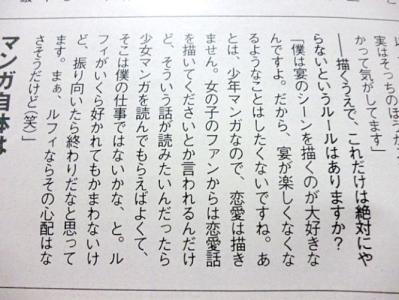 実はそっちのほうが
かって気がしてます」
――描くうえで、これだけは絶対にや
らないというルールはありますか?
「僕は宴のシーンを描くのが大好きな
んですよ。だから、宴が楽しくなくな
るようなことはしたくないですね。あ
とは、少年マンガなので、恋愛は描き
ません。女の子のファンからは恋愛話
を描いてくださいとか言われるんだけ
ど、そういう話が読みたいんだったら
少女マンガを読んでもらえばよくて、
そこは僕の仕事ではないかな、と。ル
フィがいくら好かれてもかまわないけ
ど、振り向いたら終わりだなと思って
ます。まぁ、ルフィならその心配はな
さそうだけど(笑)」
マンガ自体は